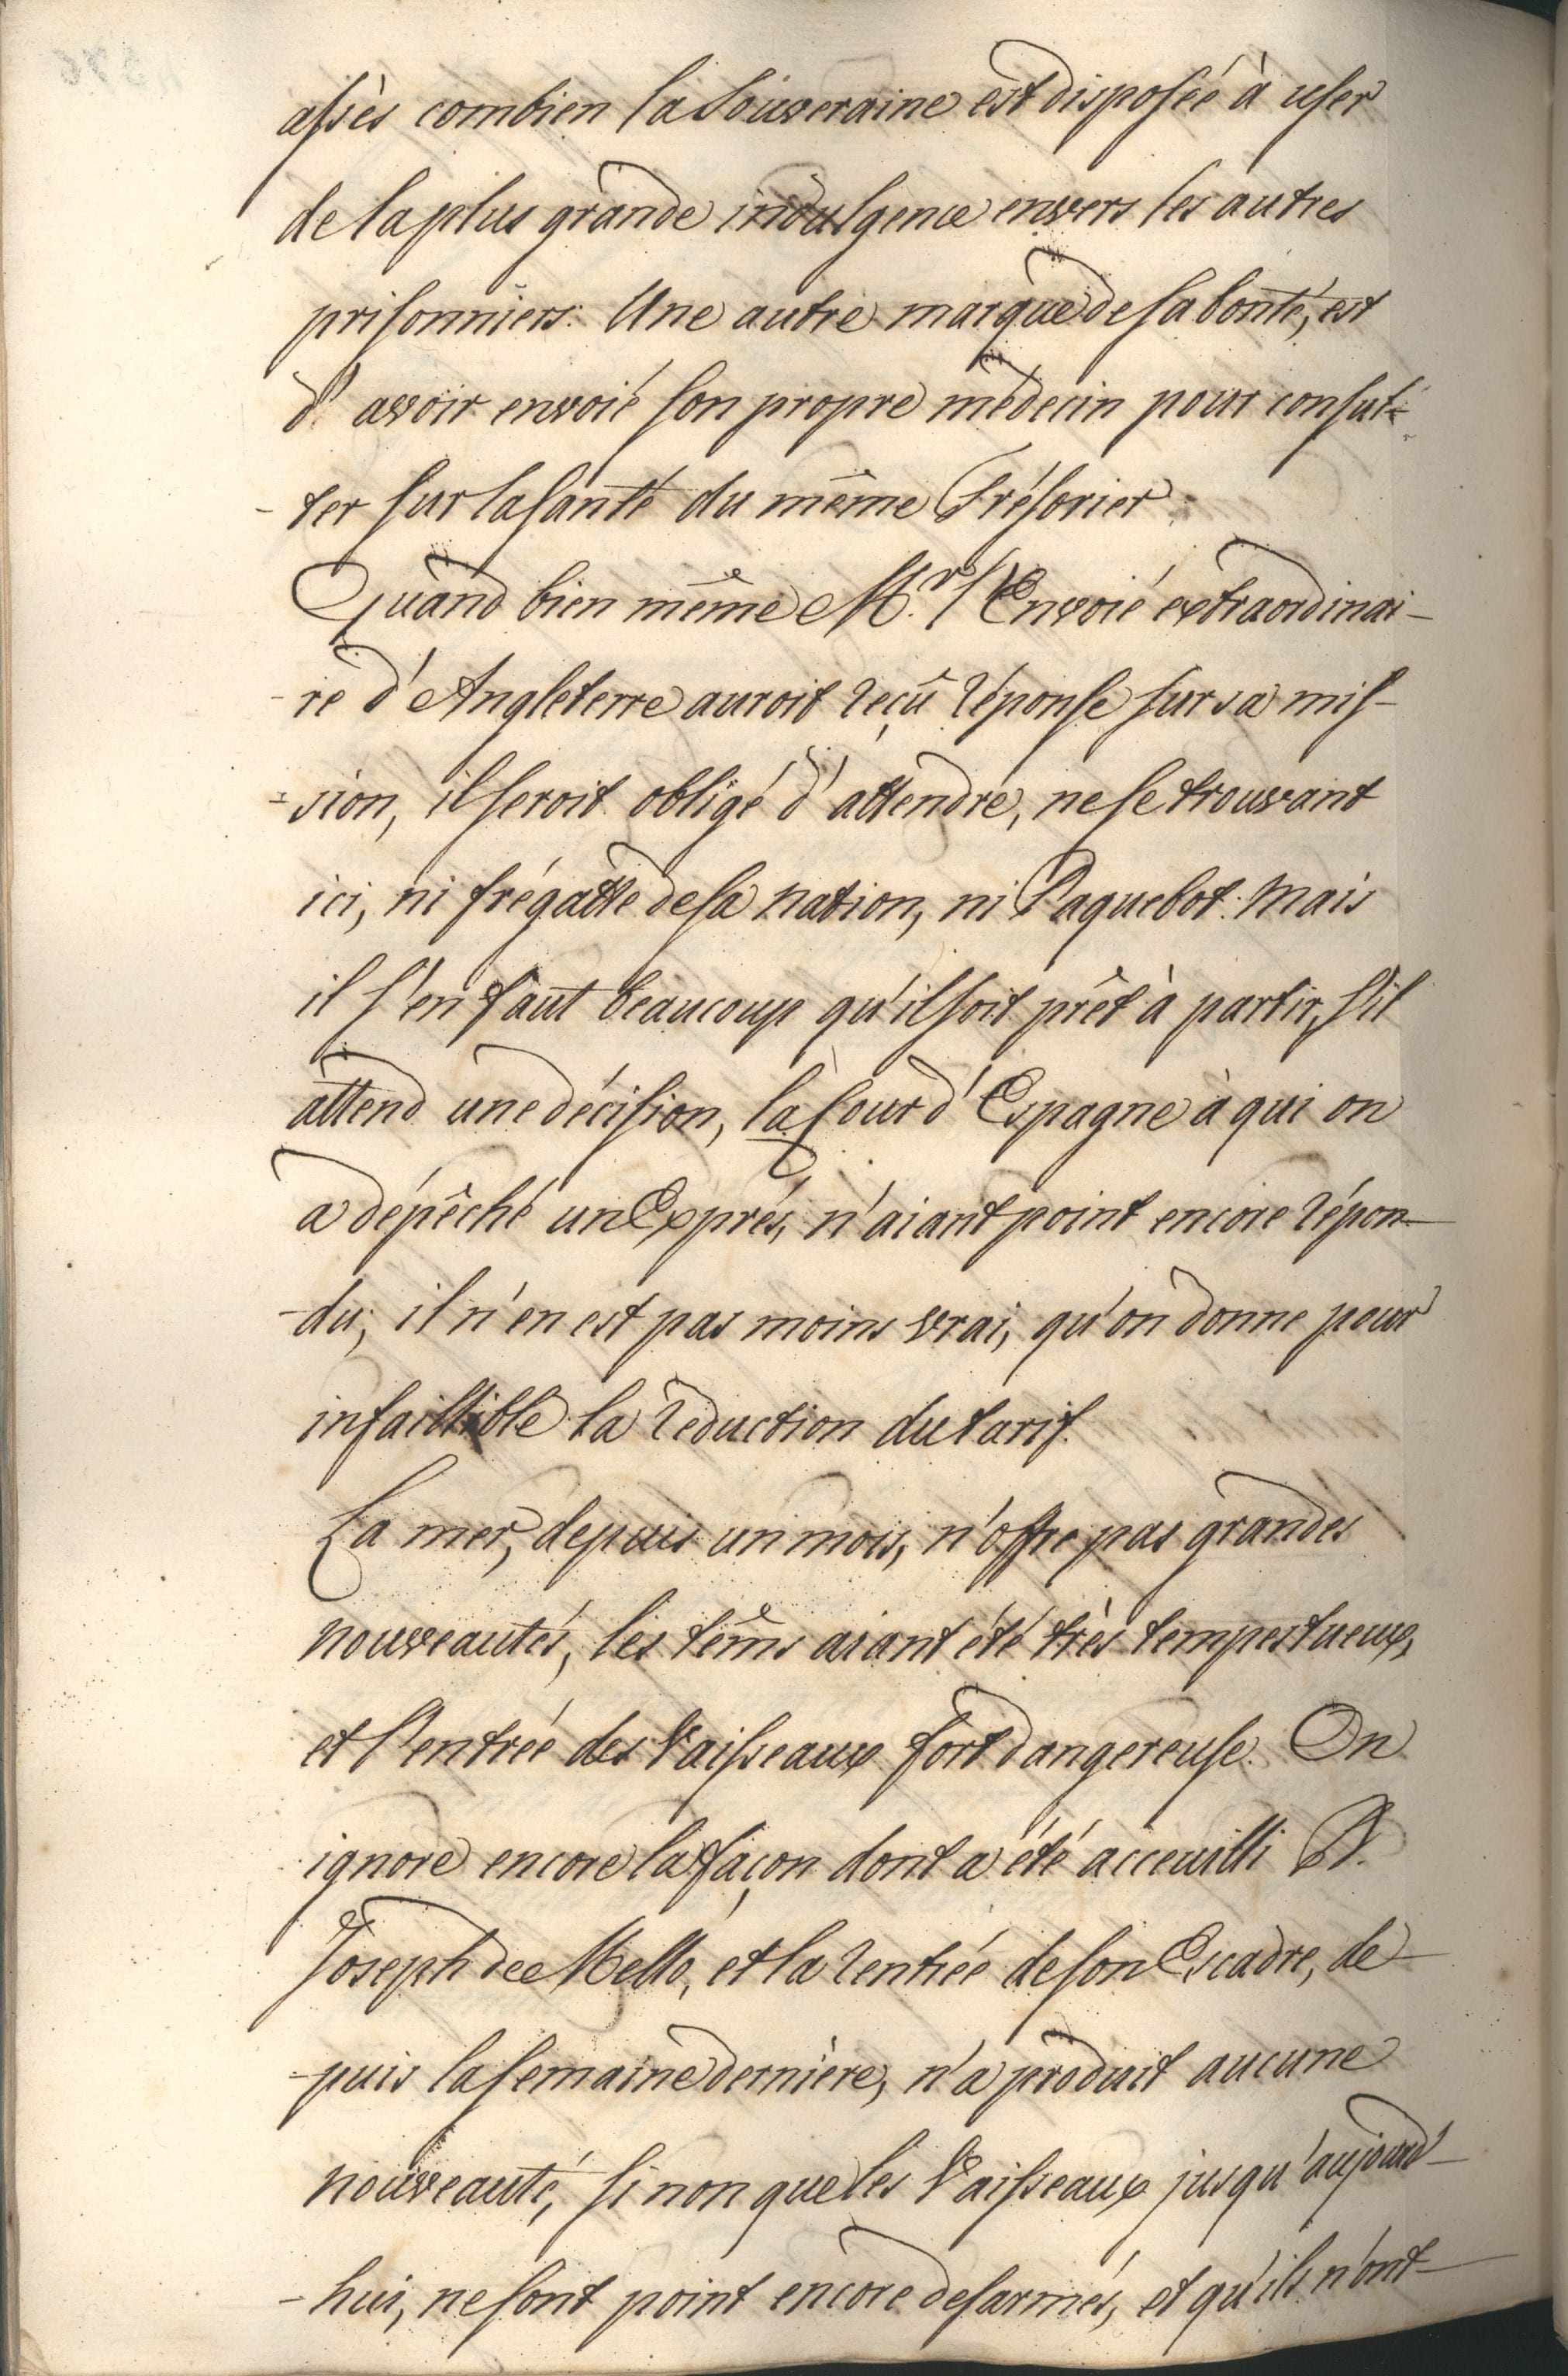 assès combien la Souveraine est disposée à user
de la plus grande indulgence envers les autres
prisonniers. Une autre marque de sa bonté, est
d'avoir envoié son propre médecin pour consul-
-ter sur la santé du même Trésorier.
Quand bien même Mr. l'Envoié extraordinai-
-re d'Angleterre auroit reçû réponse sur sa mis-
-sion, il seroit obligé d'attendre, ne se trouvant
ici, ni frégatte de sa nation, ni Paquebot: Mais
il s'en faut beaucoup qu'il soit prêt à partir, s'il
attend une décision, la Cour d'Espagne à qui on
a dépêché un Exprés, n'aiant point encore répon-
-du; il n'en est pas moins vrai, qu'on donne pour
infaillible la reduction du tarif.
La mer, depuis un mois, n'offre pas grandes
nouveautés, les têms aiant été très tempestueux,
et l'entrée des Vaisseaux fort dangereuse. On
ignore encore la façon dont a été acceuilli D.
Joseph de Mello, et la rentrée de son Escadre, de-
-puis la semaine dernière, n'a produit aucune
nouveauté, sinon que les Vaisseaux jusqu'aujourd'-
-hui, ne sont point encore desarmés, et qu'ils n'ont-